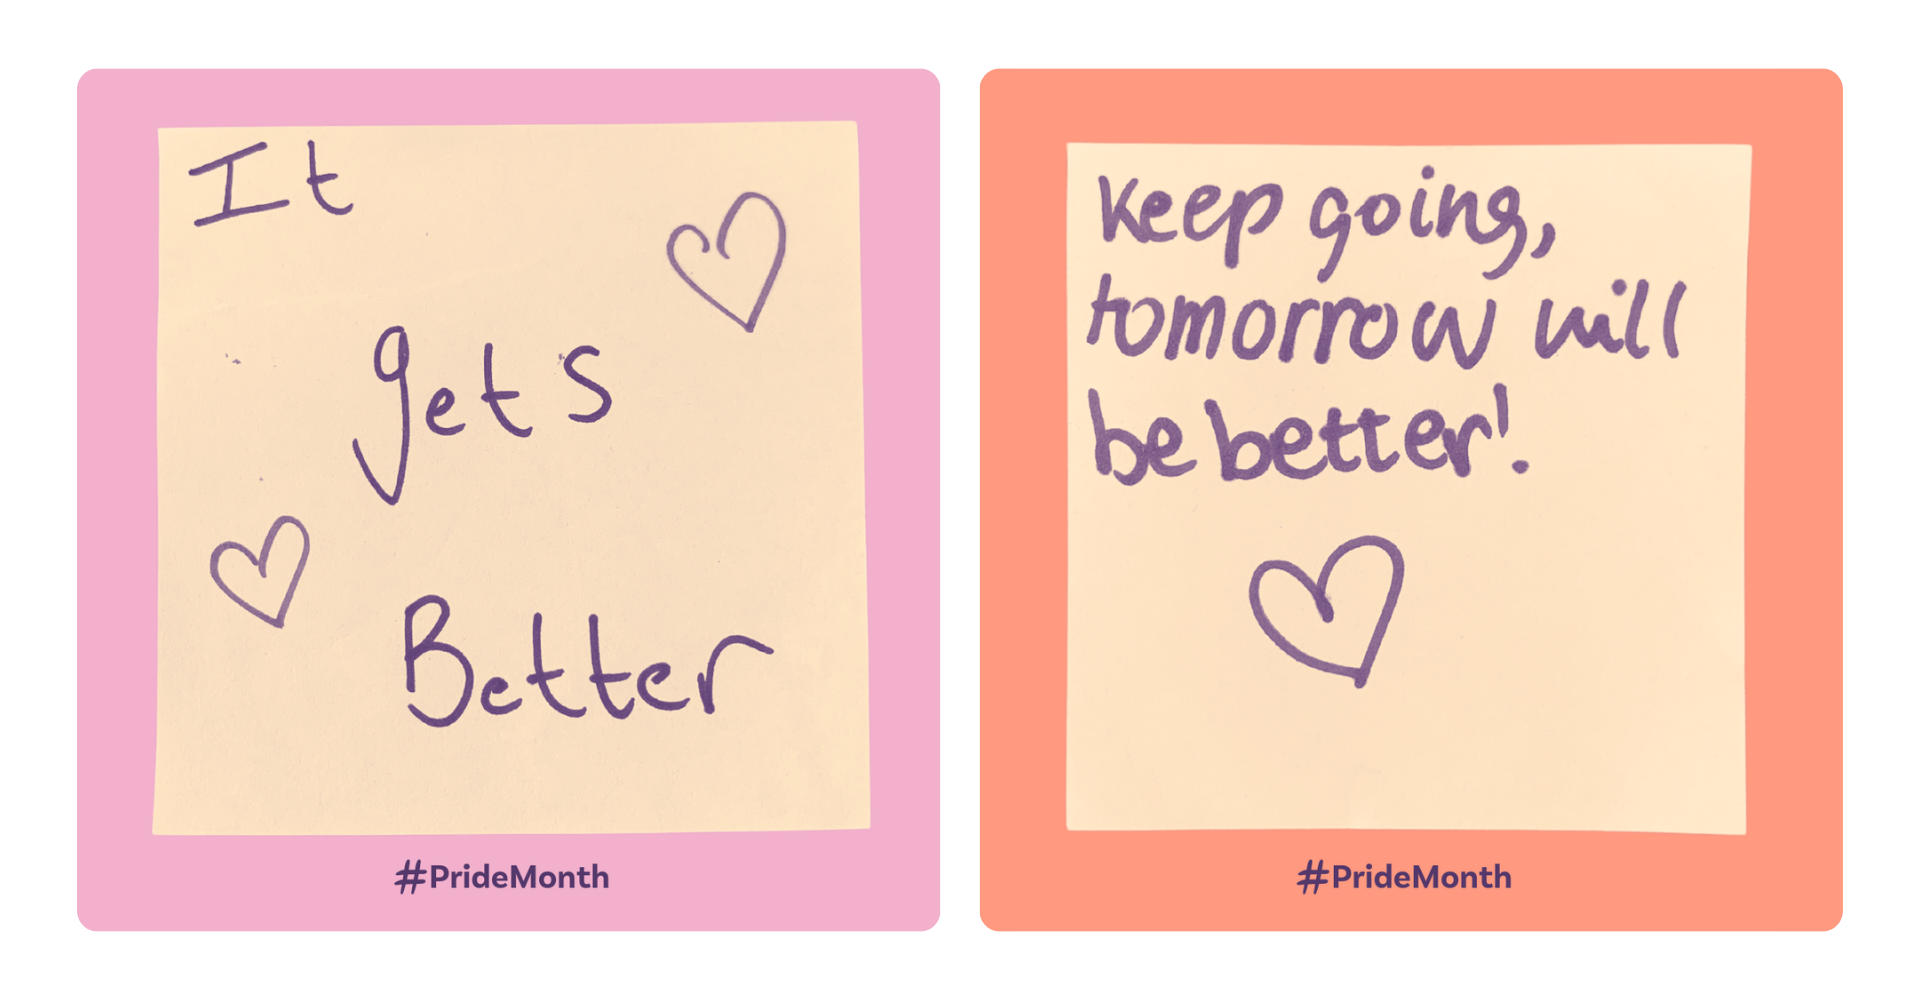 It
gets
Better
#PrideMonth
Keep going,
tomorrow will
be better!
#PrideMonth